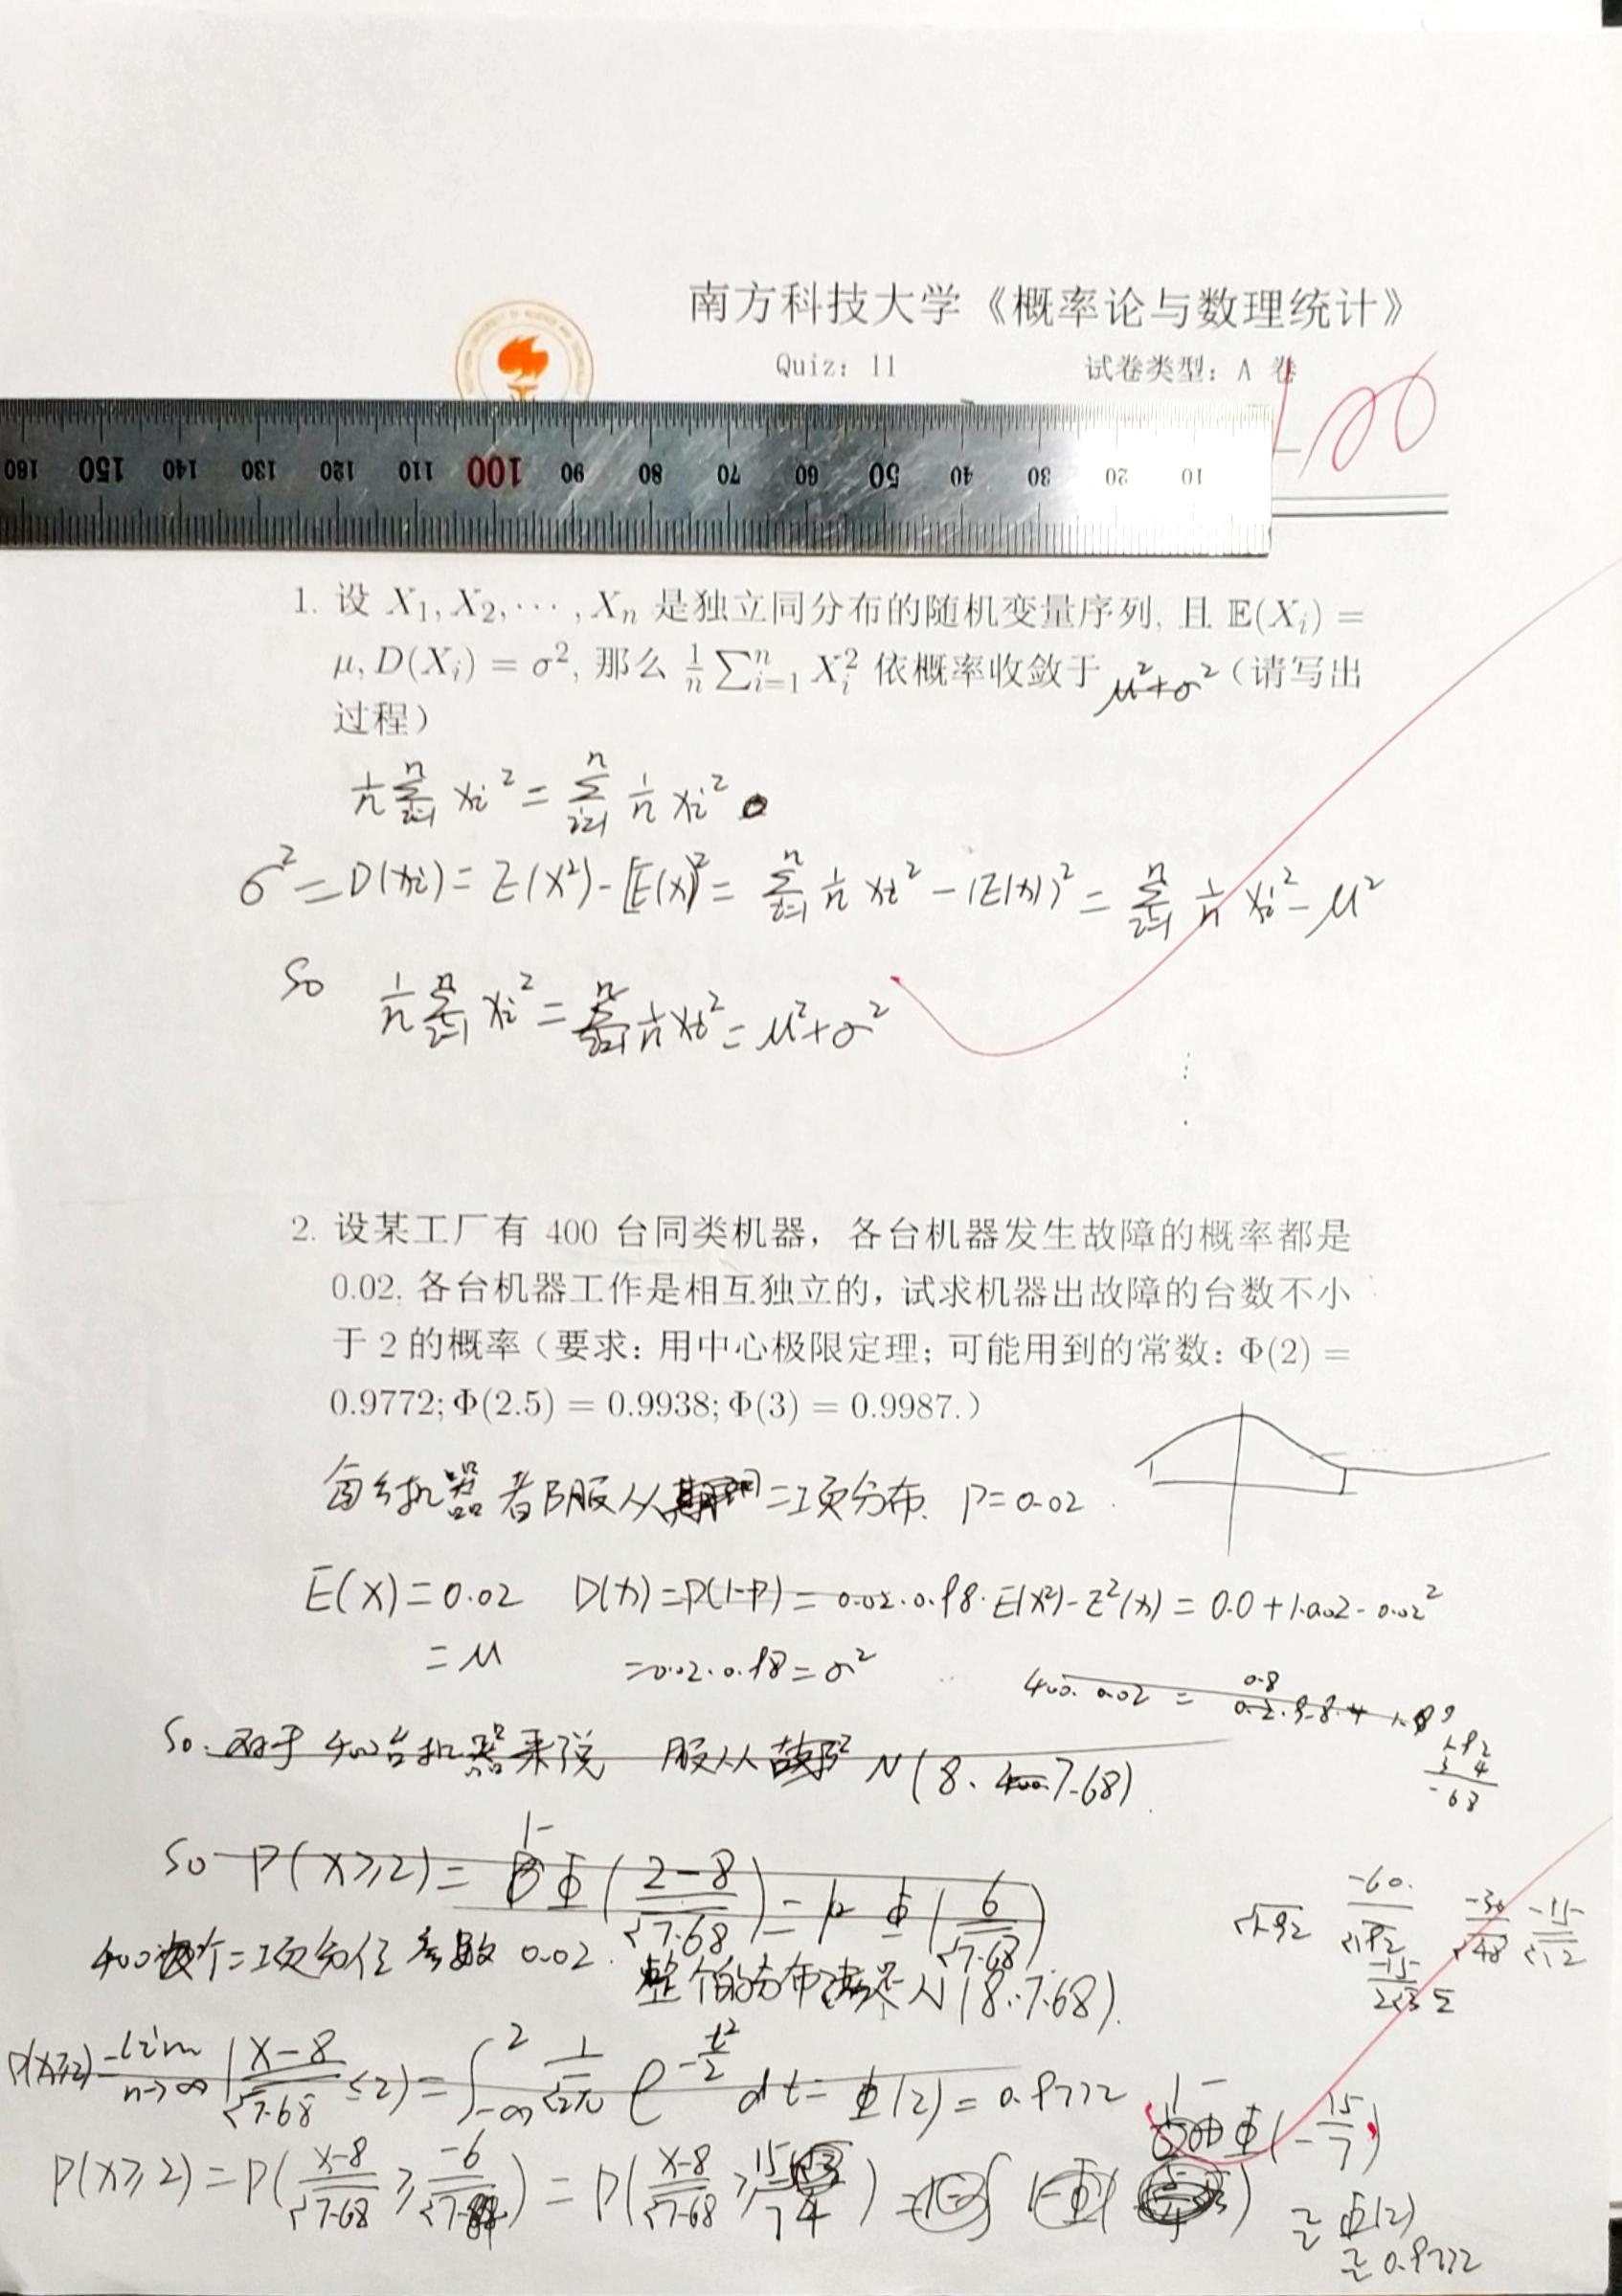 南方科技大学《概率论与数理统计》
Quiz: 11 试卷类型: A 卷
100
160 150 140 130 120 110 100 90 80 70 60 50 40 30 20 10
1. 设 X₁, X₂, ⋯, Xₙ 是独立同分布的随机变量序列, 且 𝔼(Xᵢ) =
μ, D(Xᵢ) = σ², 那么 1/n ∑ⁿᵢ₌₁ Xᵢ² 依概率收敛于 μ²+σ² (请写出
过程)
1/n ∑ⁿᵢ₌₁ Xᵢ² = ∑ⁿᵢ₌₁ 1/n Xᵢ²
σ² = D(Xᵢ) = E(X²) - [E(X)]² = ∑ⁿᵢ₌₁ 1/n Xᵢ² - (E(X))² = ∑ⁿᵢ₌₁ 1/n Xᵢ² - μ²
So 1/n ∑ⁿᵢ₌₁ Xᵢ² = ∑ⁿᵢ₌₁ 1/n Xᵢ² = μ²+σ²
2. 设某工厂有 400 台同类机器, 各台机器发生故障的概率都是
0.02, 各台机器工作是相互独立的, 试求机器出故障的台数不小
于 2 的概率 (要求: 用中心极限定理; 可能用到的常数: Φ(2) =
0.9772; Φ(2.5) = 0.9938; Φ(3) = 0.9987.)
每台机器都服从二项分布. P=0.02
E(X)=0.02 D(X)=P(1-P)=0.02·0.98· E(X²)-E²(X) = 0.0+1·0.02-0.02²
=μ =0.02·0.98=σ²
400·0.02 =
So 对于400台机器来说 服从 N(8, 7.68).
So P(X≥2) = 1-Φ((2-8)/√7.68) = Φ(6/√7.68)
400个二项分布 参数 0.02. 整个的分布是 N(8, 7.68).
P(X≥2) = lim n→∞ ((X-8)/√7.68 ≤2) = ∫₋∞² 1/√2π e^(-t²/2) dt = Φ(2) = 0.9772
P(X≥2) = P((X-8)/√7.68 ≥ -6/√7.68) = P((X-8)/√7.68 ≥
1-Φ(-15/7)
≈ Φ(2)
≈ 0.9772